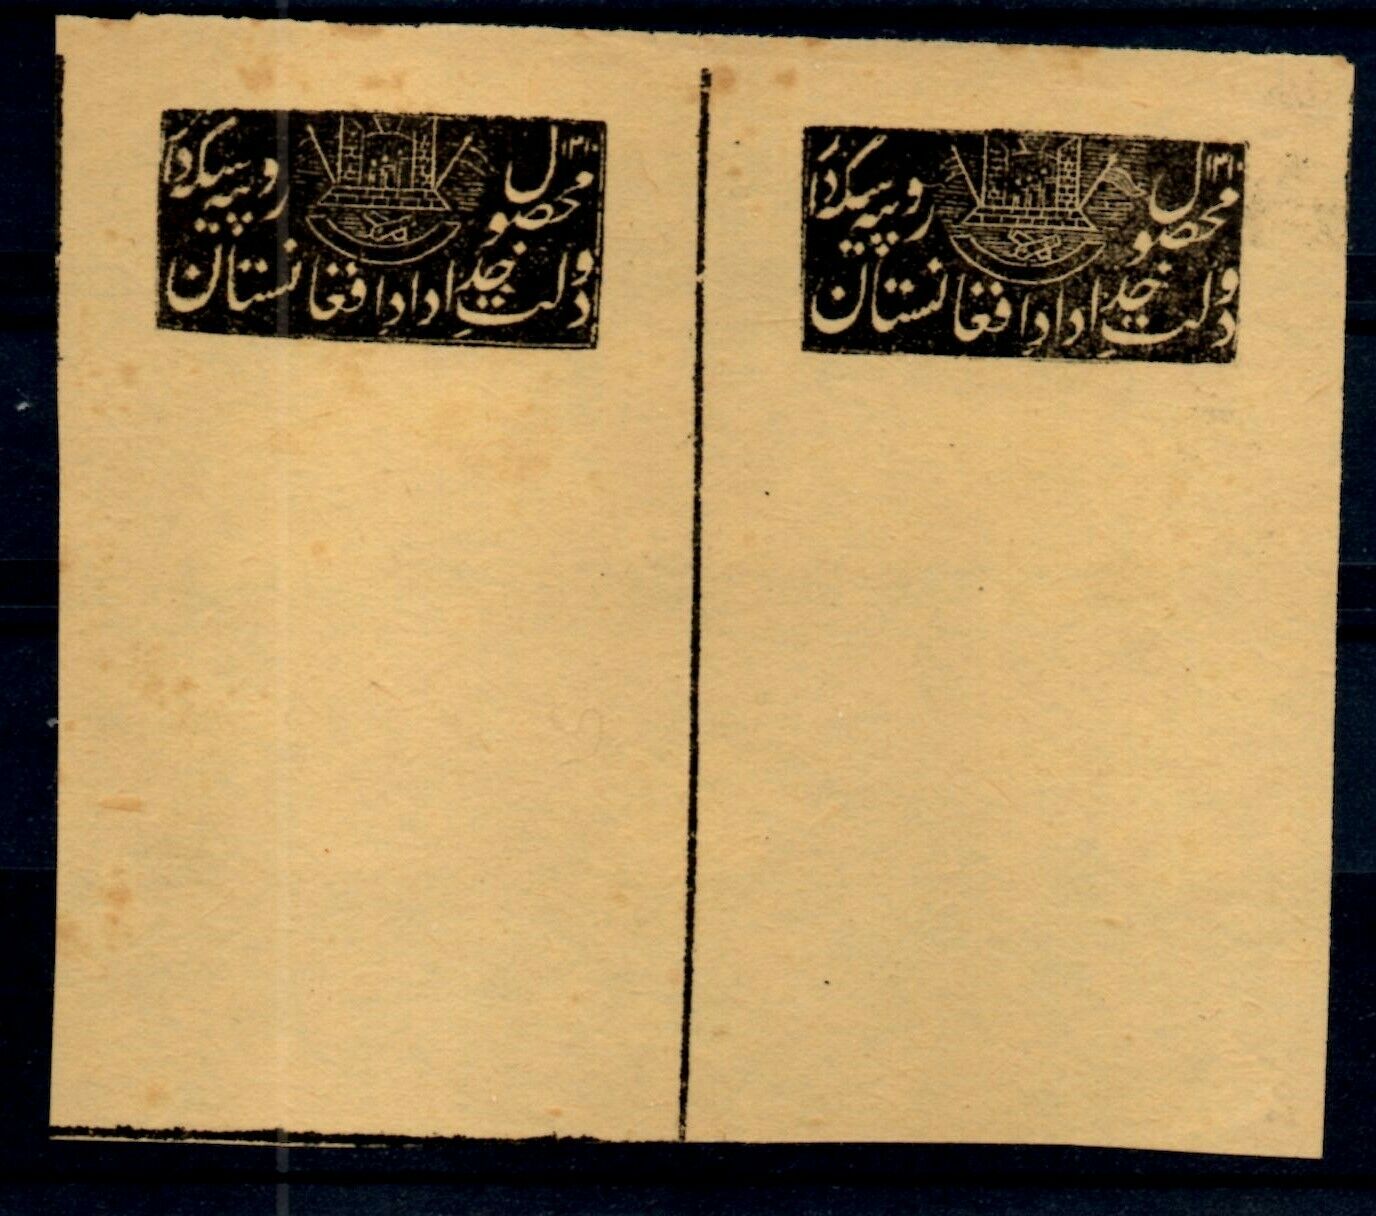 ۱۳۱۰
محصول
روپیه سیکد
دولتِ خداداد افغانستان
۱۳۱۰
محصول
روپیه سیکد
دولتِ خداداد افغانستان